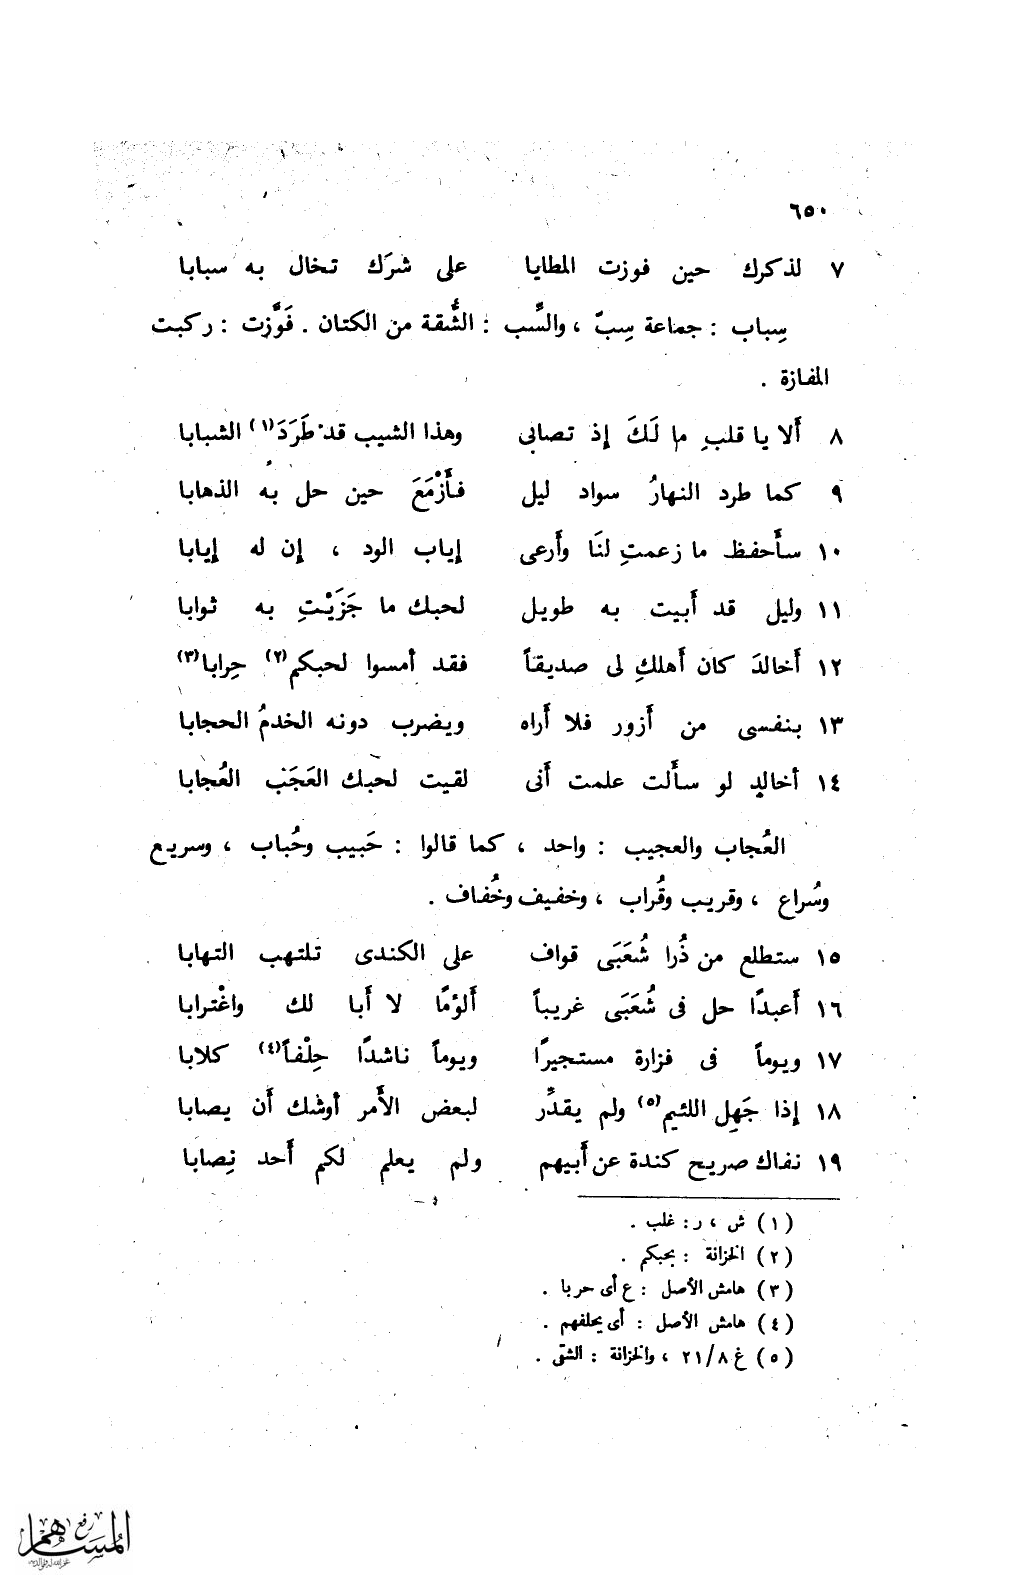 ٦٥٠
٧ لذكرك حين فوزت المطايا على شرَك تخال به سبابا
سِباب : جماعة سِبّ ، والسِّب : الشُّقة من الكتان . فَوَّزت : ركبت
المفازة .
٨ أَلا يا قلبِ ما لَكَ إذ تصابى وهذا الشيب قد طَرَدَ(١) الشبابا
٩ كما طرد النهارُ سواد ليل فأَزْمَعَ حين حل به الذهابا
١٠ سأَحفظ ما زعمتِ لنَا وأَرعى إياب الود ، إن له إيابا
١١ وليل قد أَبيت به طويل لحبك ما جَزَيْتِ به ثوابا
١٢ أَخالدَ كان أَهلكِ لى صديقاً فقد أمسوا لحبكم(٢) حِرابا(٣)
١٣ بنفسى من أَزور فلا أَراه ويضرب دونه الخدمُ الحجابا
١٤ أخالد لو سأَلت علمت أَنى لقيت لحبك العَجَب العُجابا
العُجاب والعجيب : واحد ، كما قالوا : حَبيب وحُباب ، وسريع
وسُراع ، وقريب وقُراب ، وخفيف وخُفاف .
١٥ ستطلع من ذُرا شُعَبَى قواف على الكندى تلتهب التهابا
١٦ أَعبدًا حل فى شُعَبَى غريباً أَلؤمًا لا أَبا لك واغْترابا
١٧ ويوماً فى فزارة مستجيرًا ويوماً ناشدًا حِلْفاً(٤) كلابا
١٨ إذا جَهِل اللئيم(٥) ولم يقدِّر لبعض الأَمر أوشك أَن يصابا
١٩ نفاك صريح كندة عن أَبيهم ولم يعلم لكم أَحد نِصابا
(١) ش ، ر : غلب .
(٢) الخزانة : بحبكم .
(٣) هامش الأصل : ع أى حربا .
(٤) هامش الأصل : أى يحلفهم .
(٥) غ ٢١/٨ ، والخزانة : الشقى .
رفع
المساهم
غفر الله له ولوالديه